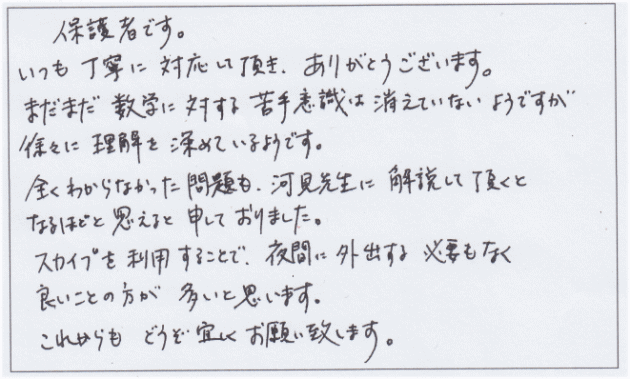 保護者です。
いつも丁寧に対応して頂き、ありがとうございます。
まだまだ数学に対する苦手意識は消えていないようですが
徐々に理解を深めているようです。
全くわからなかった問題も、河見先生に解説して頂くと
なるほどと思えると申しておりました。
スカイプを利用することで、夜間に外出する必要もなく
良いことの方が多いと思います。
これからもどうぞ宜しくお願い致します。